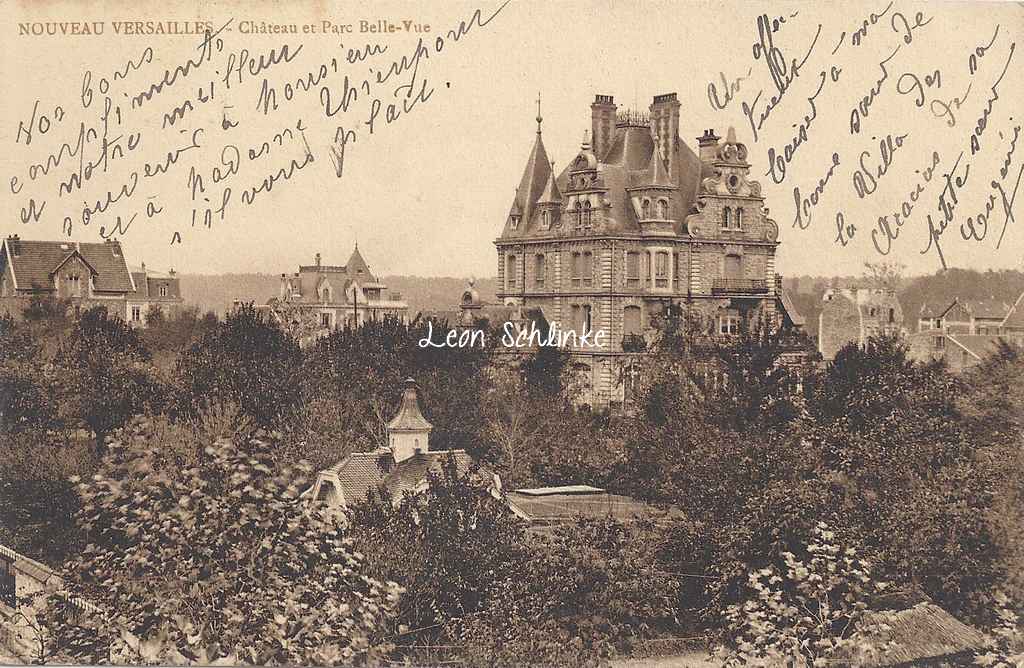 NOUVEAU VERSAILLES - Château et Parc Belle-Vue
Nos bons
compliments,
et notre meilleur
souvenir à Monsieur
et à Madame Thienpon
s'il vous plaît.
Un affec-
tueux
baiser à ma
bonne sœur de
la Villa des
Acacias de sa
petite sœur
Eugénie
Leon Schlinke